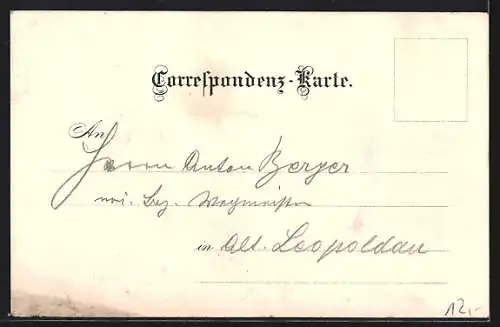 Correspondenz-Karte.
An
Herrn Anton Berger
Bez. Wegmeister
in Alt. Leopoldau
12,-